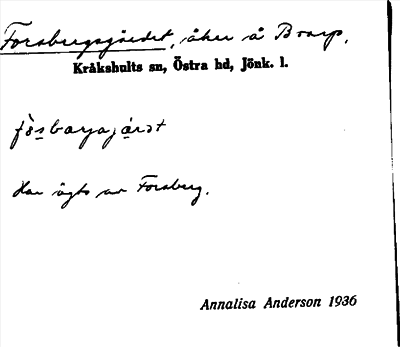 Forsbergsgärdet, åker å Broarp.
Kråkshults sn, Östra hd, Jönk. l.
Har ägts av Forsberg.
Annalisa Anderson 1936